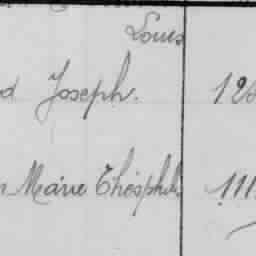 Louis
d Joseph. 12
n Marie Théophil 111